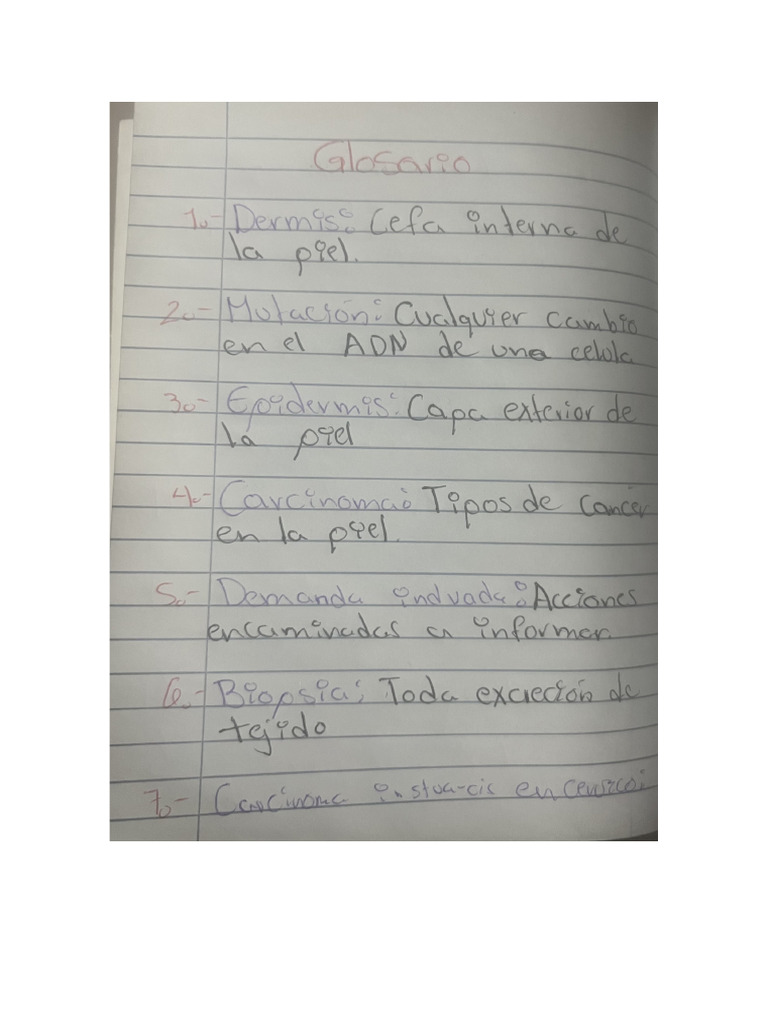 Glosario
1.- Dermis: Cefa interna de
la piel.
2.- Mutación: Cualquier cambio
en el ADN de una celula
3.- Epidermis: Capa exterior de
la piel
4.- Carcinoma: Tipos de cancer
en la piel.
5.- Demanda induada: Acciones
encaminadas a informar
6.- Biopsia: Toda excreción de
tejido
7.- Carcinoma en